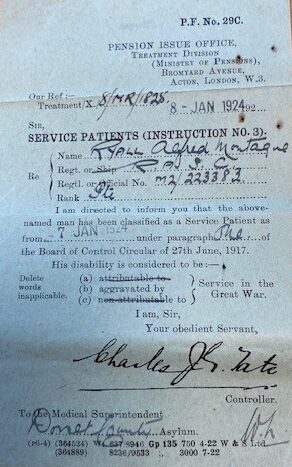 P.F. No. 29C.
PENSION ISSUE OFFICE,
TREATMENT DIVISION
(MINISTRY OF PENSIONS),
BROMYARD AVENUE,
ACTON, LONDON, W.3.
Our Ref:—
Treatment/X. 8/MR/1825
8 - JAN 1924 92...
SIR,
SERVICE PATIENTS (INSTRUCTION NO. 3).
Name RYALL Alfred Montague
Re Regtl. or Ship R.A.S.C.
Regtl. or Official No. M2/223383
Rank Pte
I am directed to inform you that the above-
named man has been classified as a Service Patient as
from 7 JAN 1924 under paragraph of
the Board of Control Circular of 27th June, 1917.
His disability is considered to be:—
Delete words inapplicable. (a) attributable to
(b) aggravated by
(c) non-attributable to
Service in the Great War.
I am, Sir,
Your obedient Servant,
Charles J. Tate
Controller.
To the Medical Superintendent
Dorset County Asylum.
(r6-4) (364524) Wt. 637/8946 Gp 135 750 4-22 W & S Ltd.
(364889) 8236/9533 ,, 3000 7-22